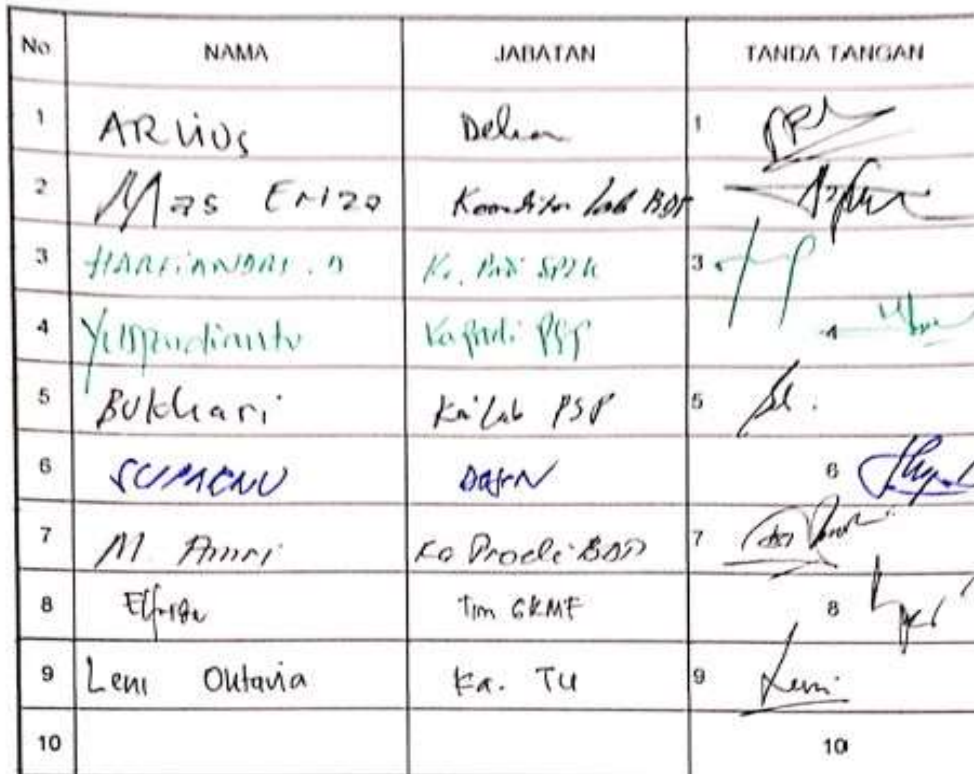 No NAMA JABATAN TANDA TANGAN
1 ARLIUS Dekan 1
2 Mas Eriza Koordinator Lab BDP
3 HARFIANDRI . D Ka. Prodi SP2K 3
4 Yuspardianto Kaprodi PSP 4
5 Bukhari Ka Lab PSP 5
6 SUPARNO Dosen 6
7 M. Amri Ka Prodi BDP 7
8 Tim GKMF 8
9 Leni Oktavia Ka. TU 9 Leni
10 10